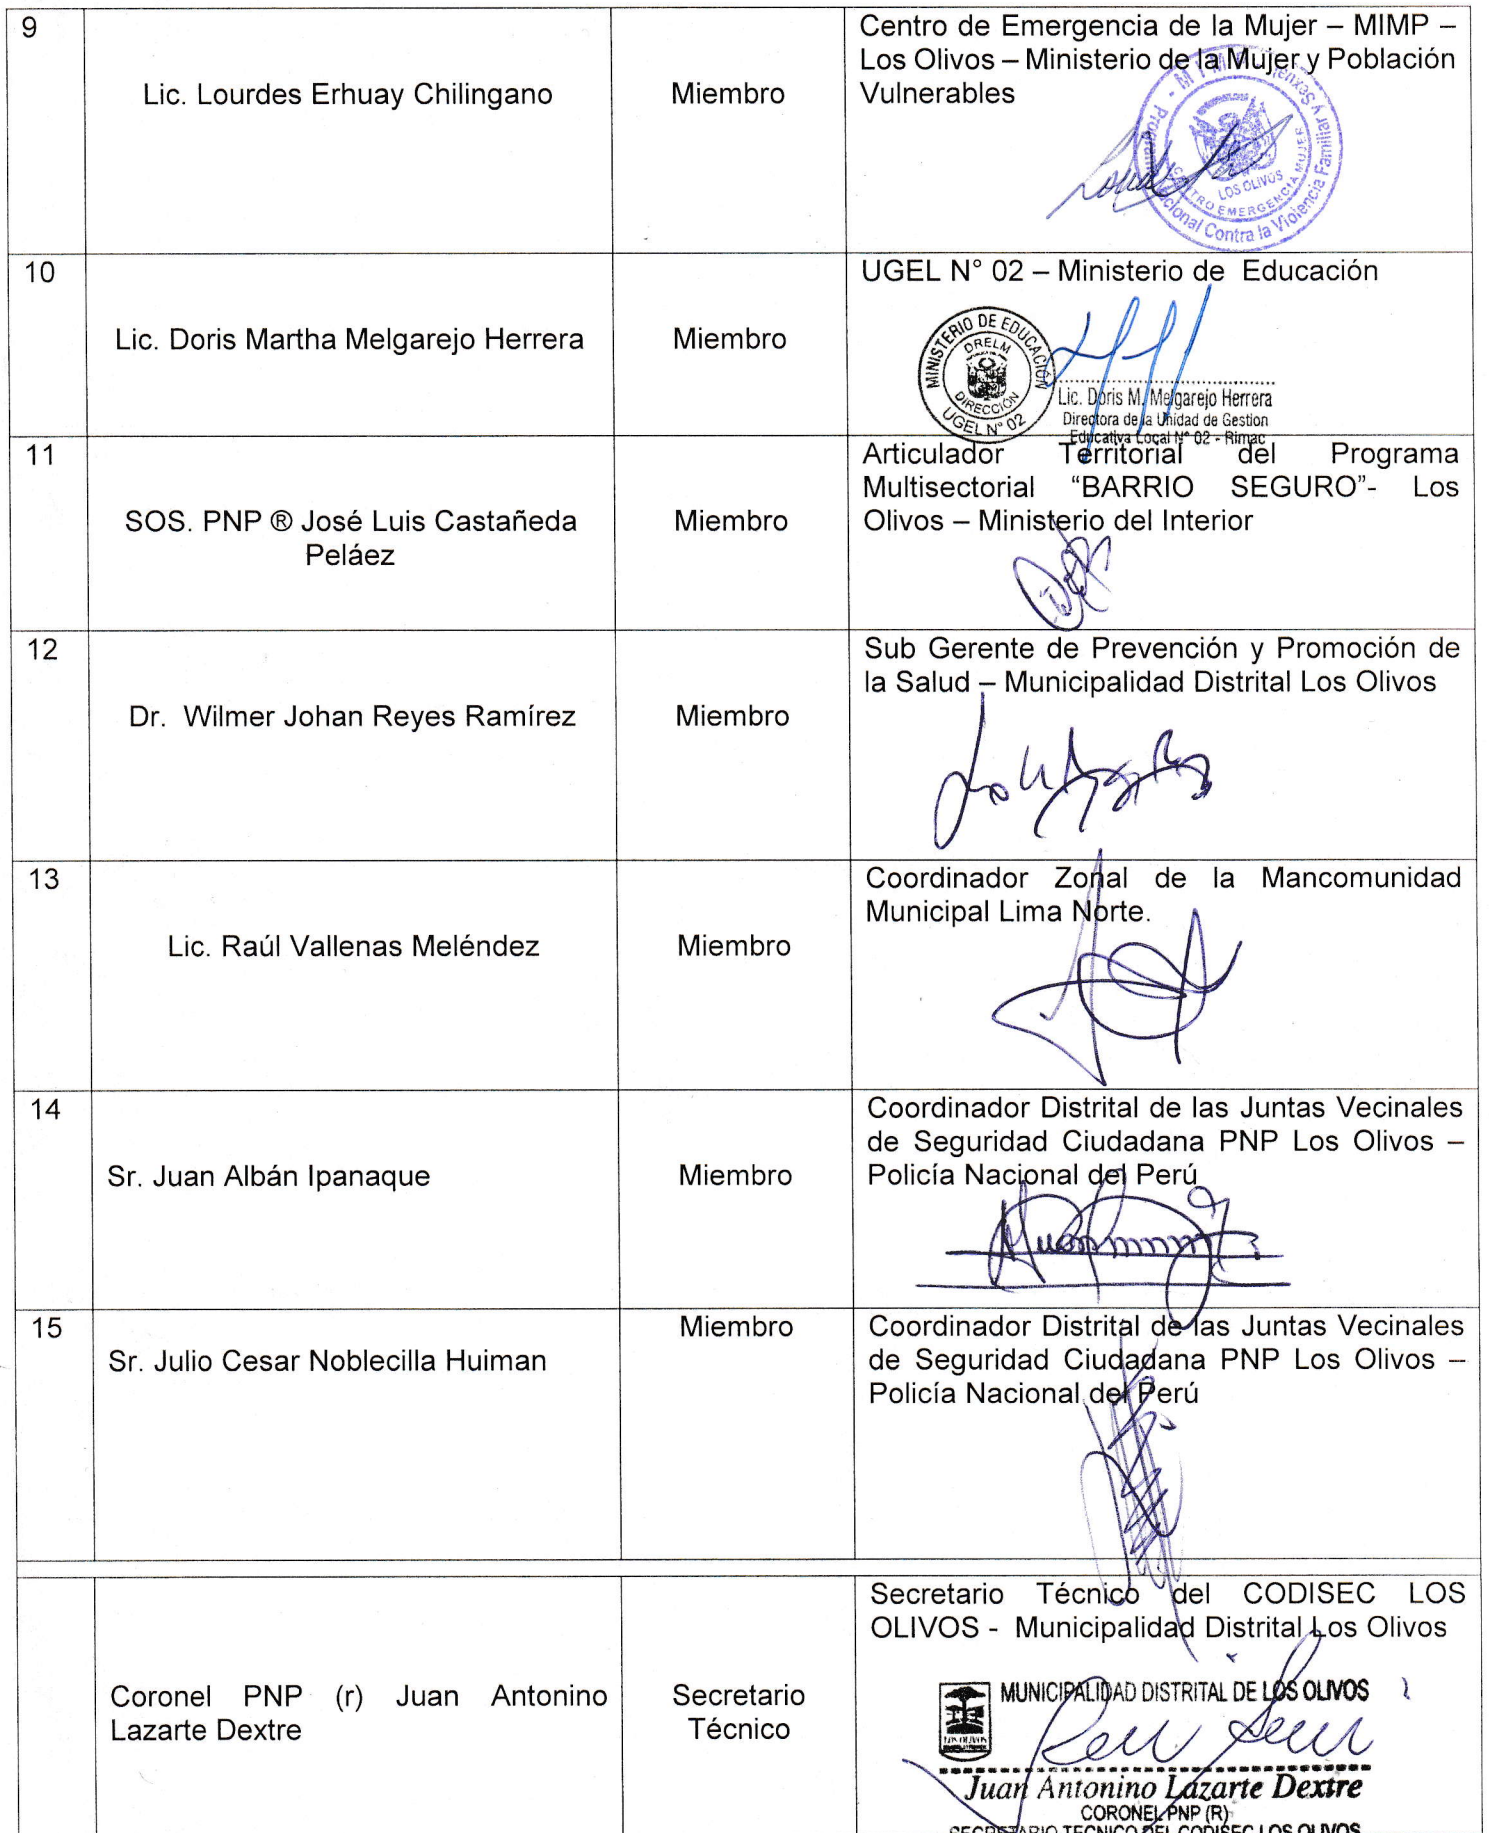 9
Lic. Lourdes Erhuay Chilingano
Miembro
Centro de Emergencia de la Mujer – MIMP –
Los Olivos – Ministerio de la Mujer y Población
Vulnerables
MIMP - Programa Nacional Contra la Violencia Familiar y Sexual
CENTRO EMERGENCIA MUJER
LOS OLIVOS
10
Lic. Doris Martha Melgarejo Herrera
Miembro
UGEL N° 02 – Ministerio de Educación
MINISTERIO DE EDUCACIÓN
DRELM
DIRECCIÓN
UGEL N° 02
Lic. Doris M. Melgarejo Herrera
Directora de la Unidad de Gestion
Educativa Local N° 02 - Rimac
11
SOS. PNP ® José Luis Castañeda
Peláez
Miembro
Articulador Territorial del Programa
Multisectorial “BARRIO SEGURO”- Los
Olivos – Ministerio del Interior
12
Dr. Wilmer Johan Reyes Ramírez
Miembro
Sub Gerente de Prevención y Promoción de
la Salud – Municipalidad Distrital Los Olivos
13
Lic. Raúl Vallenas Meléndez
Miembro
Coordinador Zonal de la Mancomunidad
Municipal Lima Norte.
14
Sr. Juan Albán Ipanaque
Miembro
Coordinador Distrital de las Juntas Vecinales
de Seguridad Ciudadana PNP Los Olivos –
Policía Nacional del Perú
15
Sr. Julio Cesar Noblecilla Huiman
Miembro
Coordinador Distrital de las Juntas Vecinales
de Seguridad Ciudadana PNP Los Olivos –
Policía Nacional del Perú
Coronel PNP (r) Juan Antonino
Lazarte Dextre
Secretario
Técnico
Secretario Técnico del CODISEC LOS
OLIVOS - Municipalidad Distrital Los Olivos
MUNICIPALIDAD DISTRITAL DE LOS OLIVOS
LOS OLIVOS
Juan Antonino Lazarte Dextre
CORONEL PNP (R)
SECRETARIO TECNICO DEL CODISEC LOS OLIVOS